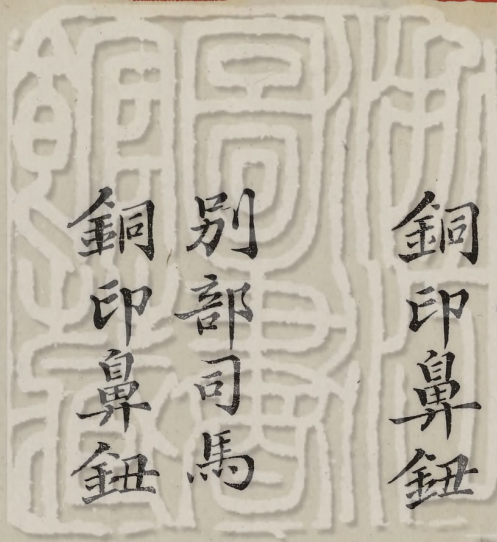 銅印鼻鈕
別部司馬
銅印鼻鈕